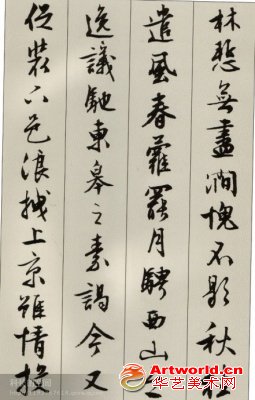 林慙無盡澗愧不歇秋桂
遣風春蘿罷月騁西山之
逸議馳東皋之素謁今又
促裝下邑浪拽上京雖情投
Artworld.cn
华艺美术网